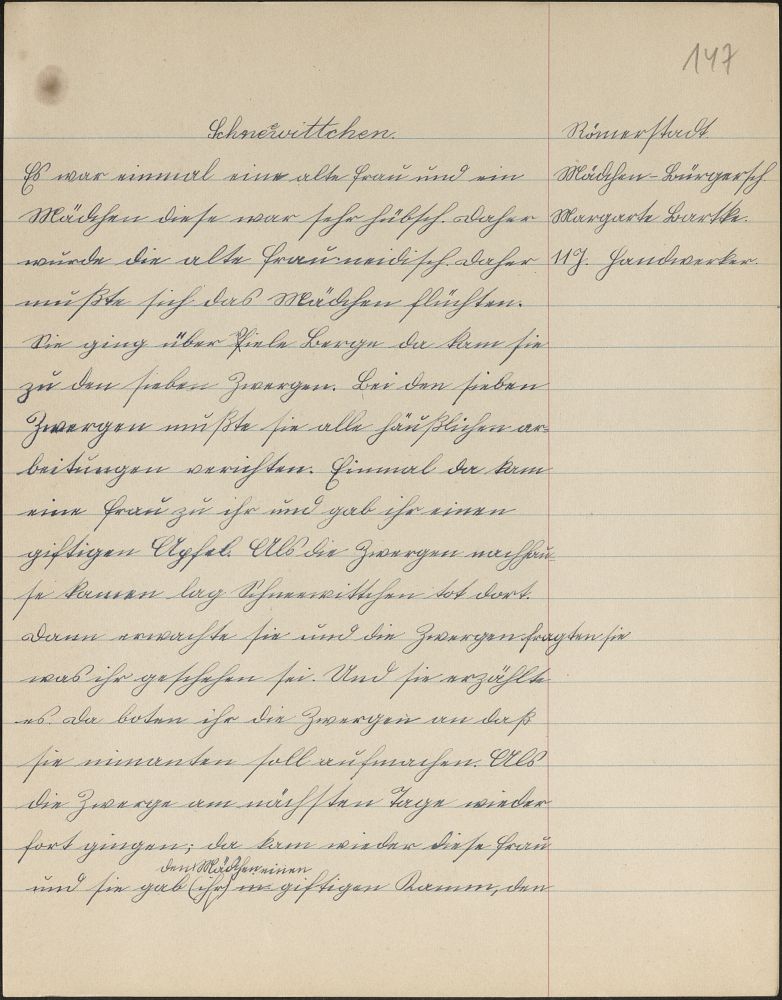 147
Schnewittchen.
Es war einmal eine alte Frau und ein
Mädchen diese war sehr hübsch. Daher
wurde die alte Frau neidisch. Daher
mußte sich das Mädchen flüchten.
Sie ging über Viele Berge da kam sie
zu den sieben Zwergen. Bei den sieben
Zwergen mußte sie alle häußlichen ar=
beitungen verichten. Einmal da kam
eine Frau zu ihr und gab ihr einen
giftigen Apfel. Als die Zwergen nachhau=
se kamen lag Schneewittchen tot dort.
Dann erwachte sie und die Zwergen fragten sie
was ihr geschehen sei. Und sie erzählte
es. Da boten ihr die Zwergen an daß
sie nimanten soll aufmachen. Als
die Zwerge am nächsten Tage wieder
fort gingen; da kam wieder diese Frau
den Mädchen einen
und sie gab (ihr) giftigen Kamm, den
Römerstadt
Mädchen-Bürgersch
Margarte Bartke.
11J. Handwerker.